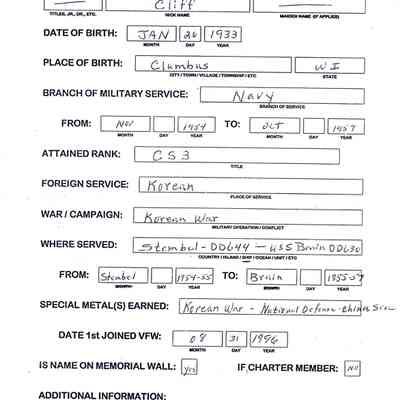 Cliff
TITLES, JR., DR., ETC. NICK NAME MAIDEN NAME (IF APPLIES)
DATE OF BIRTH: JAN 26 1933
MONTH DAY YEAR
PLACE OF BIRTH: Clumbus WI
CITY / TOWN / VILLAGE / TOWNSHIP / ETC STATE
BRANCH OF MILITARY SERVICE: Navy
BRANCH OF SERVICE
FROM: Nov 1954 TO: Oct 1957
MONTH DAY YEAR MONTH DAY YEAR
ATTAINED RANK: CS3
TITLE
FOREIGN SERVICE: Korean
PLACE OF SERVICE
WAR / CAMPAIGN: Korean War
MILITARY OPERATION / CONFLICT
WHERE SERVED: Stembel - DD644 - USS Brain DD630
COUNTRY / ISLAND / SHIP / OCEAN / UNIT / ETC
FROM: Stembel 1954-55 TO: Brain 1955-57
MONTH DAY YEAR MONTH DAY YEAR
SPECIAL METAL(S) EARNED: Korean War - National Defense
DATE 1st JOINED VFW: 08 31 1996
MONTH DAY YEAR
IS NAME ON MEMORIAL WALL: Yes IF CHARTER MEMBER: NO
ADDITIONAL INFORMATION: